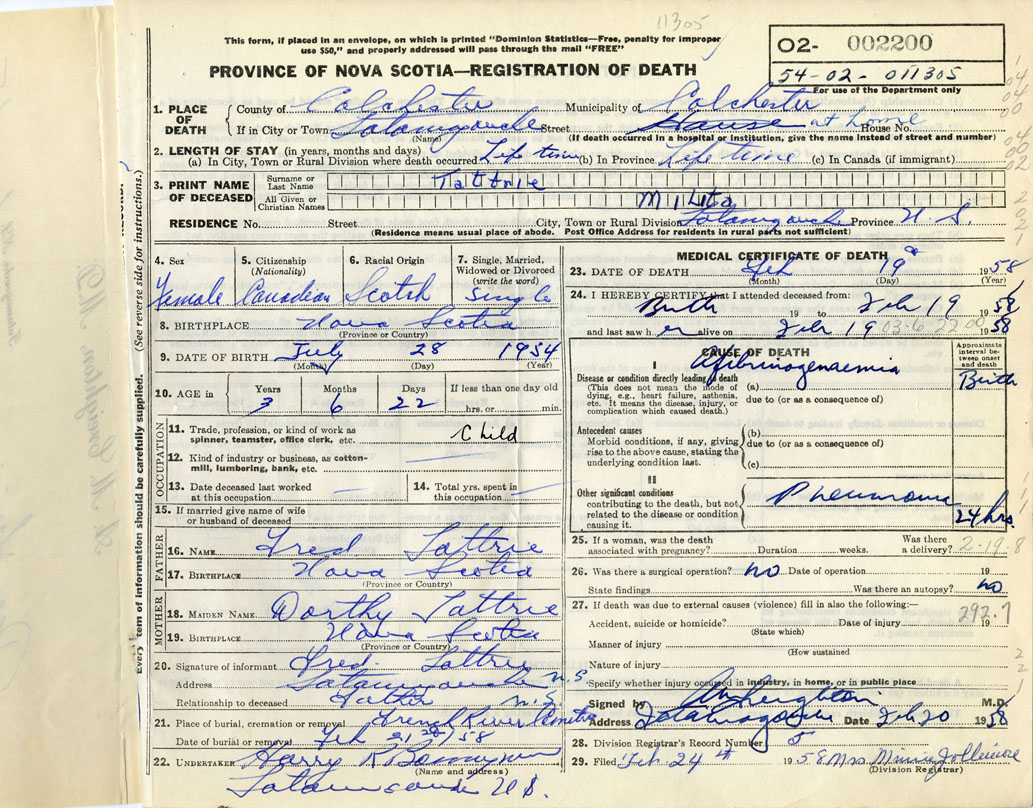 11305
This form, if placed in an envelope, on which is printed "Dominion Statistics—Free, penalty for improper
use $50," and properly addressed will pass through the mail "FREE"
PROVINCE OF NOVA SCOTIA—REGISTRATION OF DEATH
02- 002200
54-02-011305
For use of the Department only
1. PLACE OF DEATH
County of Colchester Municipality of Colchester
If in City or Town Tatamagouche Street House at home House No.
(Name) (If death occurred in a hospital or institution, give the name instead of street and number)
2. LENGTH OF STAY (in years, months and days)
(a) In City, Town or Rural Division where death occurred Life time (b) In Province Life time (c) In Canada (if immigrant)
3. PRINT NAME OF DECEASED
Surname or Last Name Tattrie
All Given or Christian Names Milita
RESIDENCE No. Street City, Town or Rural Division Tatamagouche Province N.S.
(Residence means usual place of abode. Post Office Address for residents in rural parts not sufficient)
4. Sex Female
5. Citizenship (Nationality) Canadian
6. Racial Origin Scotch
7. Single, Married, Widowed or Divorced (write the word) Single
8. BIRTHPLACE Nova Scotia
(Province or Country)
9. DATE OF BIRTH July 28 1954
(Month) (Day) (Year)
10. AGE in Years 3 Months 6 Days 22 If less than one day old hrs. or min.
OCCUPATION
11. Trade, profession, or kind of work as spinner, teamster, office clerk, etc. Child
12. Kind of industry or business, as cotton-mill, lumbering, bank, etc.
13. Date deceased last worked at this occupation
14. Total yrs. spent in this occupation
15. If married give name of wife or husband of deceased
FATHER
16. NAME Fred Tattrie
17. BIRTHPLACE Nova Scotia
(Province or Country)
MOTHER
18. MAIDEN NAME Dorthy Tattrie
19. BIRTHPLACE Nova Scotia
(Province or Country)
20. Signature of informant Fred Tattrie
Address Tatamagouche N.S
Relationship to deceased Father N.S.
21. Place of burial, cremation or removal French River
Date of burial or removal Feb 21 58
22. UNDERTAKER Harry R
(Name and address)
Tatamagouche N.S.
MEDICAL CERTIFICATE OF DEATH
23. DATE OF DEATH Feb 19 1958
(Month) (Day) (Year)
24. I HEREBY CERTIFY that I attended deceased from:
Birth 19 to Feb 19 1958
and last saw her alive on Feb 19 1958
CAUSE OF DEATH
Approximate interval between onset and death
I
Disease or condition directly leading to death
(This does not mean the mode of dying, e.g., heart failure, asthenia, etc. It means the disease, injury, or complication which caused death.)
(a) Afibrinogenaemia Birth
due to (or as a consequence of)
Antecedent causes
Morbid conditions, if any, giving rise to the above cause, stating the underlying condition last.
(b)
due to (or as a consequence of)
(c)
II
Other significant conditions
contributing to the death, but not related to the disease or condition causing it.
Pneumonia 24 hrs.
25. If a woman, was the death associated with pregnancy? Duration weeks. Was there a delivery? 2-19-8
26. Was there a surgical operation? no Date of operation 19
State findings Was there an autopsy? no
27. If death was due to external causes (violence) fill in also the following:—
Accident, suicide or homicide? Date of injury 19
(State which)
292.7
Manner of injury
(How sustained
Nature of injury
Specify whether injury occurred in industry, in home, or in public place
Signed by M.D.
Address Tatamagouche Date Feb 20 1958
28. Division Registrar's Record Number 5
29. Filed Feb. 24th 1958 Mrs Minnie
(Division Registrar)
Every item of information should be carefully supplied. (See reverse side for instructions.)